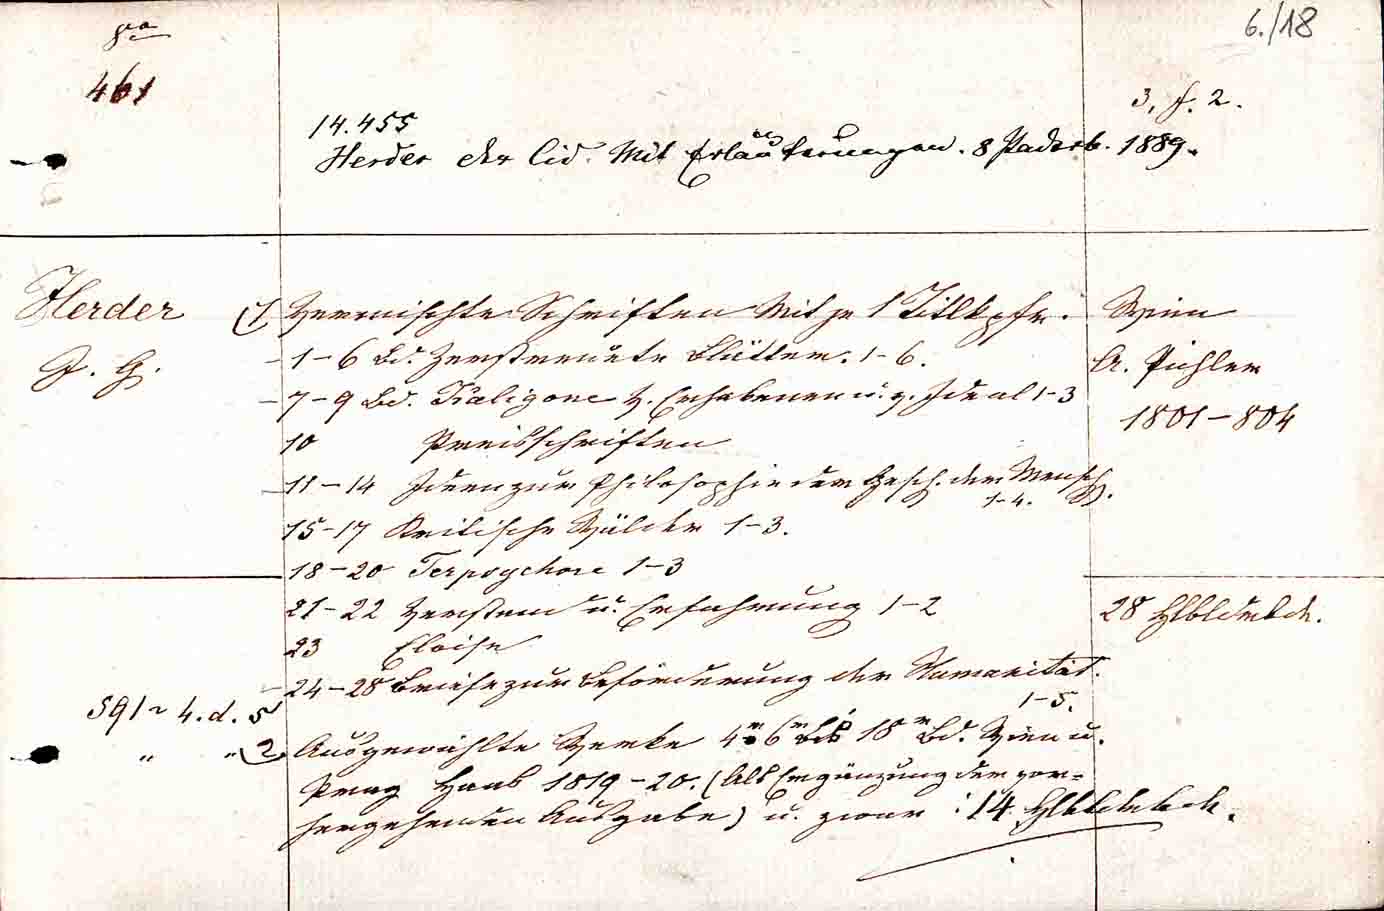 8vo
6./18
461
3, f. 2.
14.455
Herder der Cid. Mit Erläuterungen. 8 Paderb. 1889.
Herder
J. G.
1) Vermischte Schriften Mit je 1 Titlkpfr. Wien
1-6 Bd. Zerstreuete Blätter. 1-6. A. Pichler
7-9 Bd. Kaligone v. Erhabenen u. v. Ideal 1-3 1801-804
10 Preisschriften
11-14 Ideen zur Philosophie der Gesch. der Mensch.
1-4.
15-17 Kritische Wälder 1-3.
18-20 Terpsychore 1-3
21-22 Verstand u. Erfahrung 1-2 28 Hlbldrbde.
23 Eloise
24-28 Briefe zur Beförderung der Humanität.
1-5.
591~ 4. d. 5
" " 2) Ausgewählte Werke 4r 6r bis 18r Bd. Wien u.
Prag Haas 1819-20. (Als Ergänzung der vor=
hergehenden Ausgabe) u. zwar : 14 Hlbldrbde.